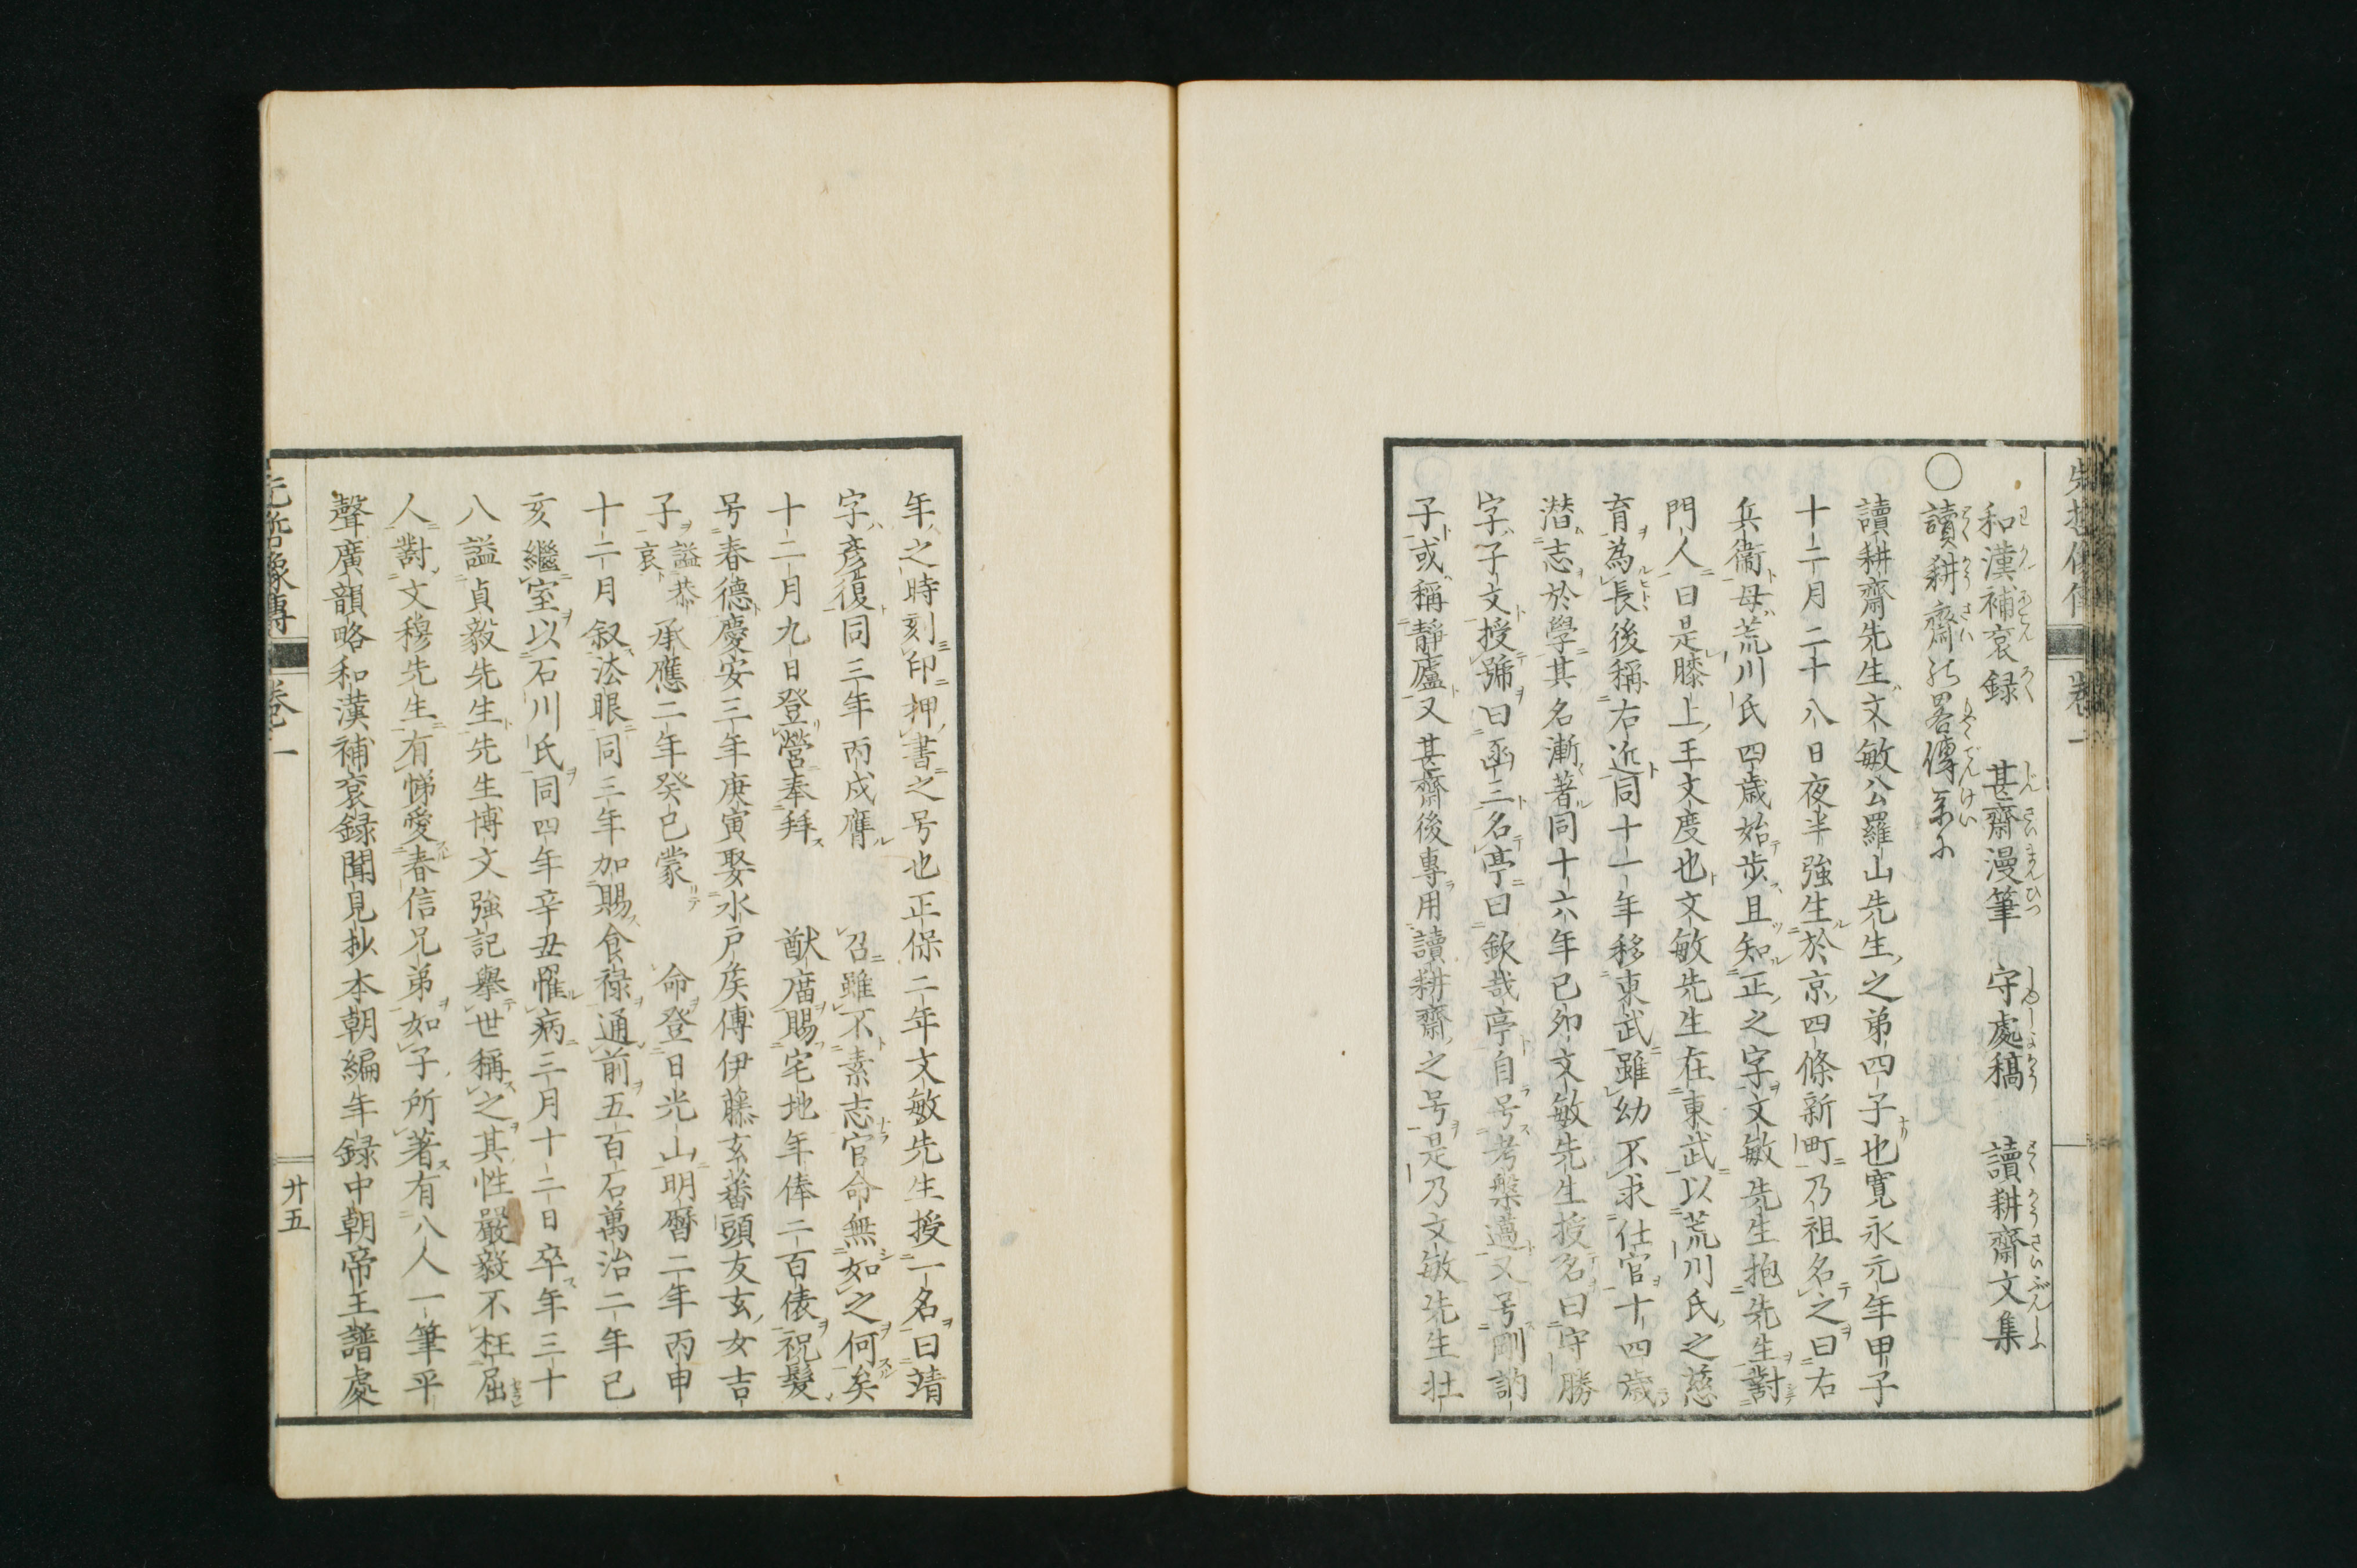 先哲像傳 卷一
和漢補袞録 甚齋漫筆 守處稿 讀耕齋文集
〇讀耕齋の畧傳系ニ
讀耕齋先生文敏公羅山先生之弟四子也寛永元年甲子
十二月二十八日夜半強生於京四條新町乃祖名之曰右
兵衞母荒川氏四歳始步且知正之字文敏先生抱先生對
門人曰是膝上王文度也文敏先生在東武以荒川氏之慈
育為長後稱右近同十一年移東武雖幼不求仕官十四歳
潜志於學其名漸著同十六年己卯文敏先生授名曰守勝
字子文授號曰函三名亭曰欽哉亭自号考槃邁又号剛訥
子或稱靜廬又甚齋後專用讀耕齋之号是乃文敏先生壮
年之時刻印押書之号也正保二年文敏先生授一名曰靖
字彦復同三年丙戌膺 召雖不素志官命無如之何矣
十二月九日登營奉拜 猷庿賜宅地年俸二百俵祝髮
号春德慶安三年庚寅娶水戸矦傅伊藤玄蕃頭友玄女吉
子謚恭哀承應二年癸巳蒙 命登日光山明暦二年丙申
十二月叙法眼同三年加賜食禄通前五百石萬治二年己
亥繼室以石川氏同四年辛丑罹病三月十二日卒年三十
八謚貞毅先生先生博文強記舉世稱之其性嚴毅不枉屈
人對文穆先生有悌愛春信兄弟如子所著有八人一筆平
聲廣韻略和漢補袞録聞見抄本朝編年録中朝帝王譜處
先哲像傳 卷一 廿五